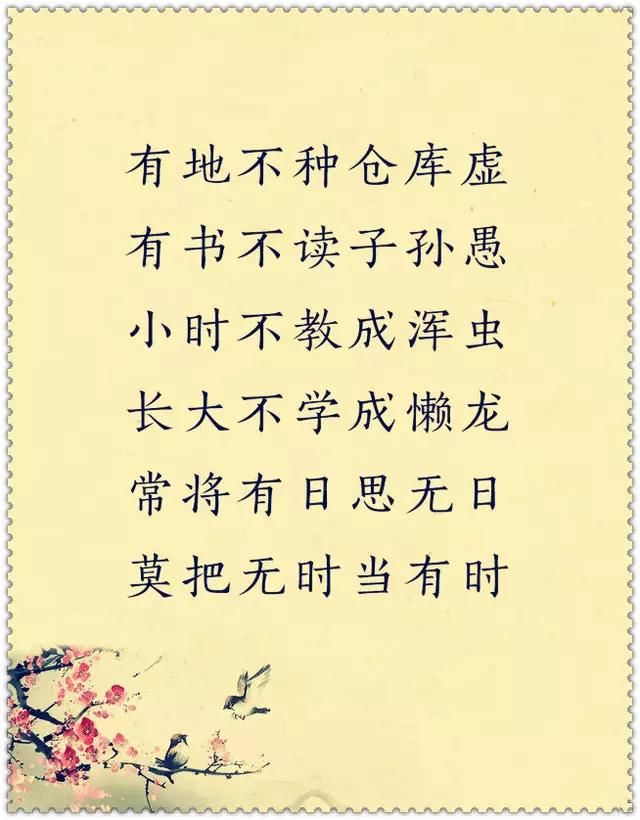 有地不种仓库虚
有书不读子孙愚
小时不教成浑虫
长大不学成懒龙
常将有日思无日
莫把无时当有时